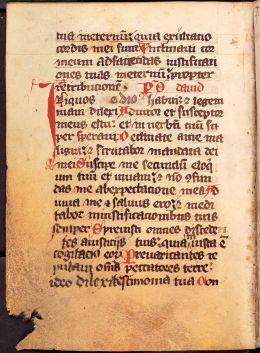 tua ineternu: quia exultatio
cordis mei sunt Inclinaui cor
meum ad faciendas iustificati
ones tuas ineternu: propter
retributione P D dauid
Iniquos odio habui: & legem
tuam dilexi Adiutor et susceptor
meus es tu: et in uerbu tuu su
per speraui Declinate a me ma
ligni: & scrutabor mandata dei
mei Suscipe me secundu eloq
uium tuu et uiuam: & no confun
das me ab expectatione mea Ad
iuua me & saluus ero: & medi
tabor in iustificationibus tuis
semper Spreuisti omnes disceden
tes a iudicijs tuis: quia iniusta e
cogitatio eoru Preuaricantes re
putaui oms peccatores terre:
ideo dilexi testimonia tua Con